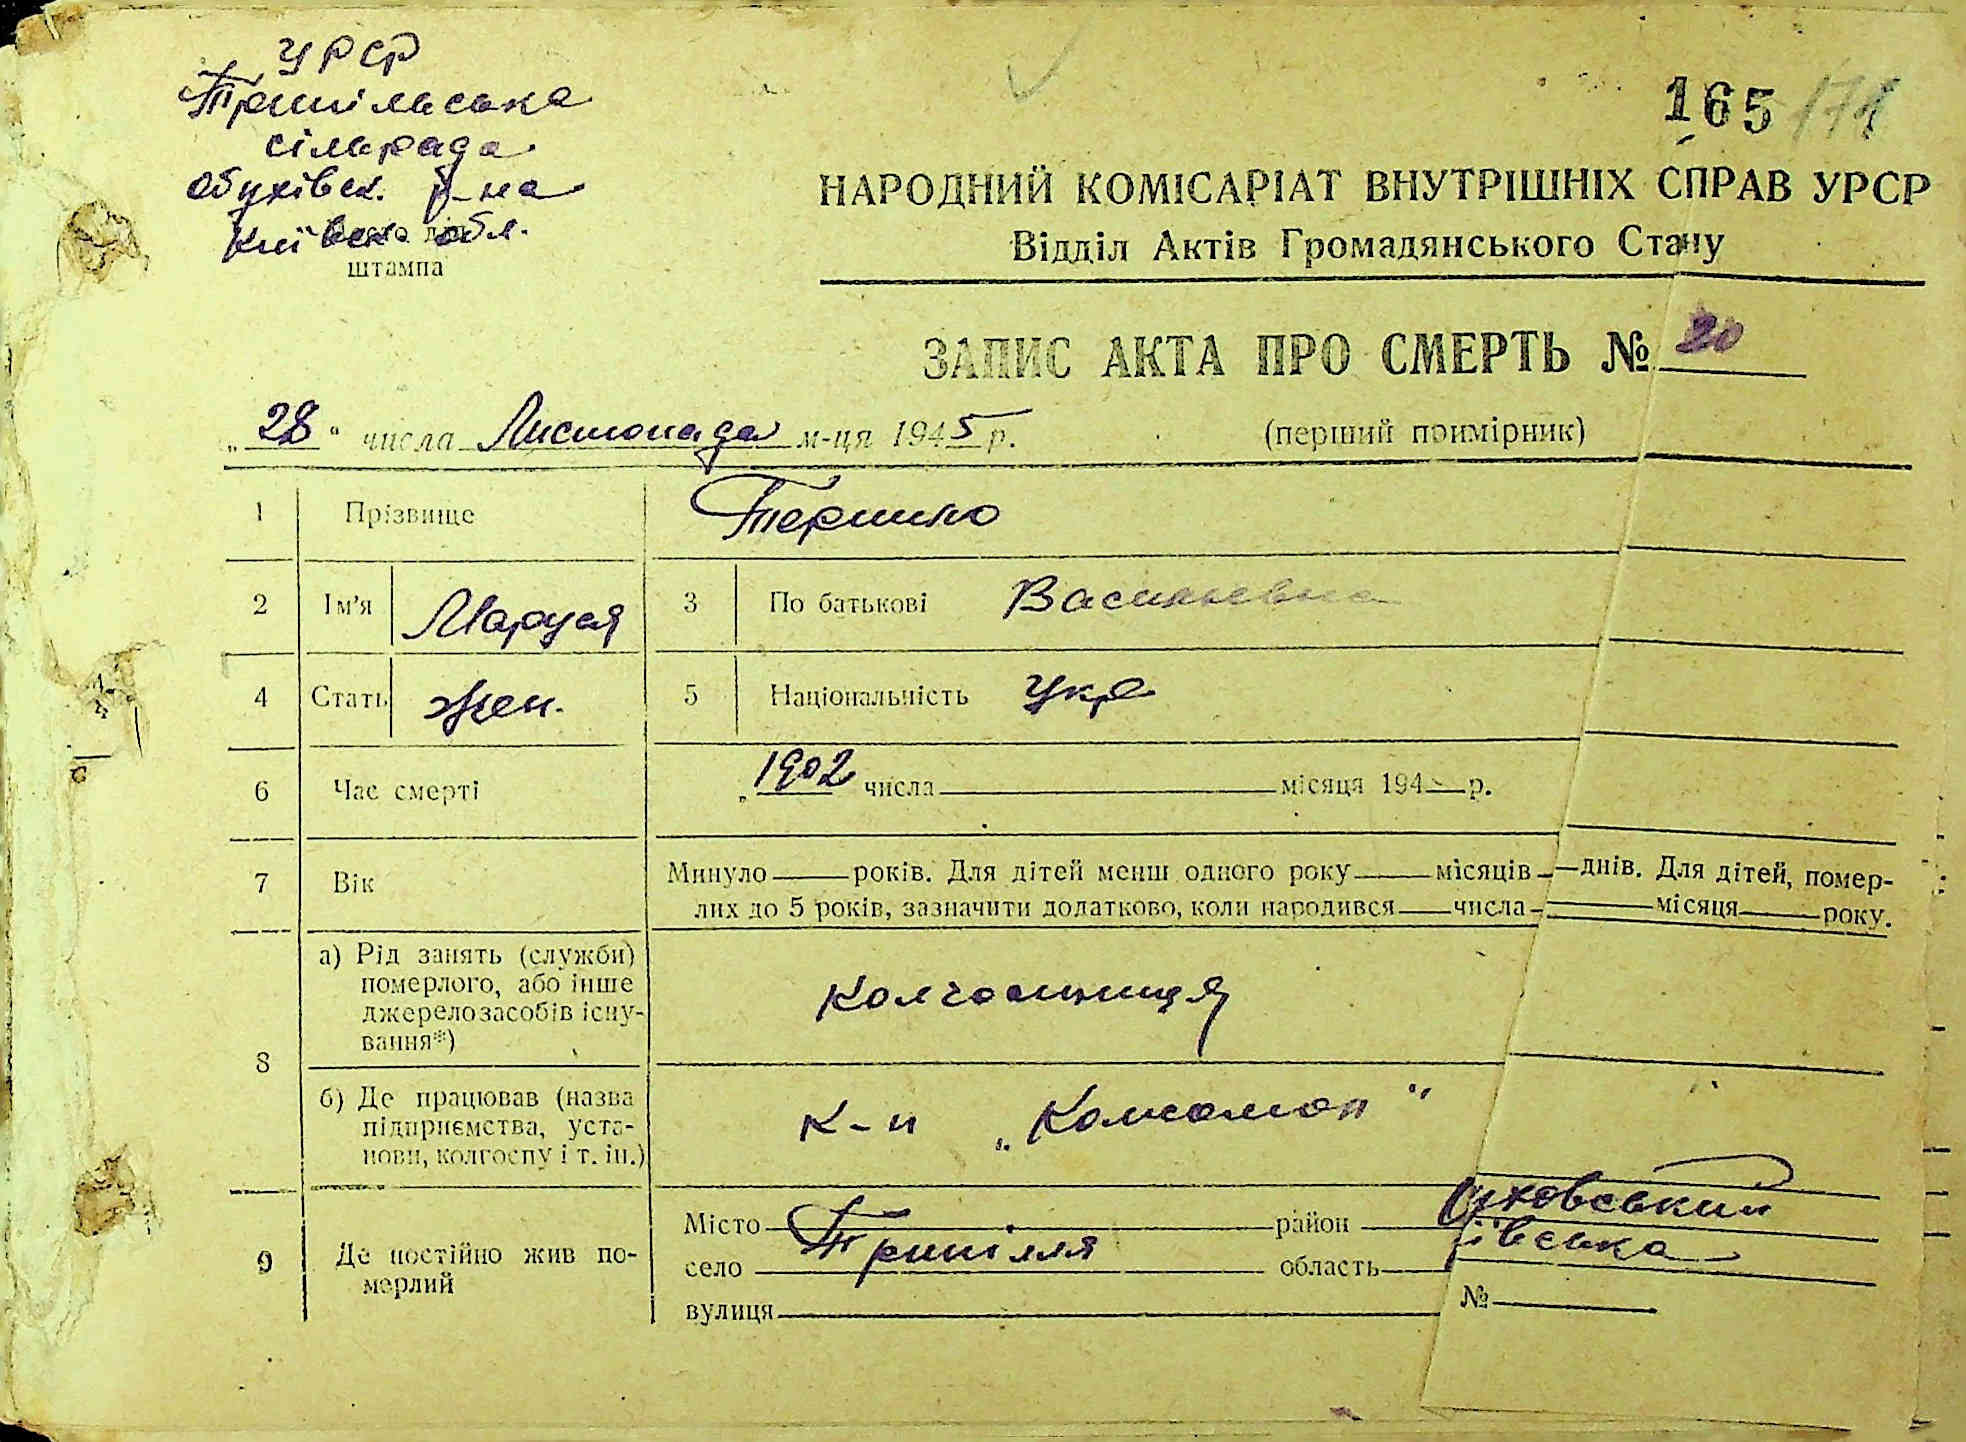 УРСР
Трипільська
сільрада
Обухівськ. р-на
Київськ обл.
штампа
165 171
НАРОДНИЙ КОМІСАРІАТ ВНУТРІШНІХ СПРАВ УРСР
Відділ Актів Громадянського Стану
ЗАПИС АКТА ПРО СМЕРТЬ № 20
„28" числа Листопада м-ця 1945 р. (перший примірник)
1 Прізвище
2 Ім'я Маруся 3 По батькові Васильевна
4 Стать жен. 5 Національність Укр
6 Час смерті „1902 числа місяця 194 р.
7 Вік Минуло років. Для дітей менш одного року місяців днів. Для дітей, помер-
лих до 5 років, зазначити додатково, коли народився числа місяця року.
8 а) Рід занять (служби)
померлого, або інше
джерело засобів існу-
вання*)
колгоспниця
б) Де працював (назва
підприємства, уста-
нови, колгоспу і т. ін.)
к-п „Комсомол"
9 Де постійно жив по-
мерлий
Місто район уховський
село Трипілля область ївська
вулиця №